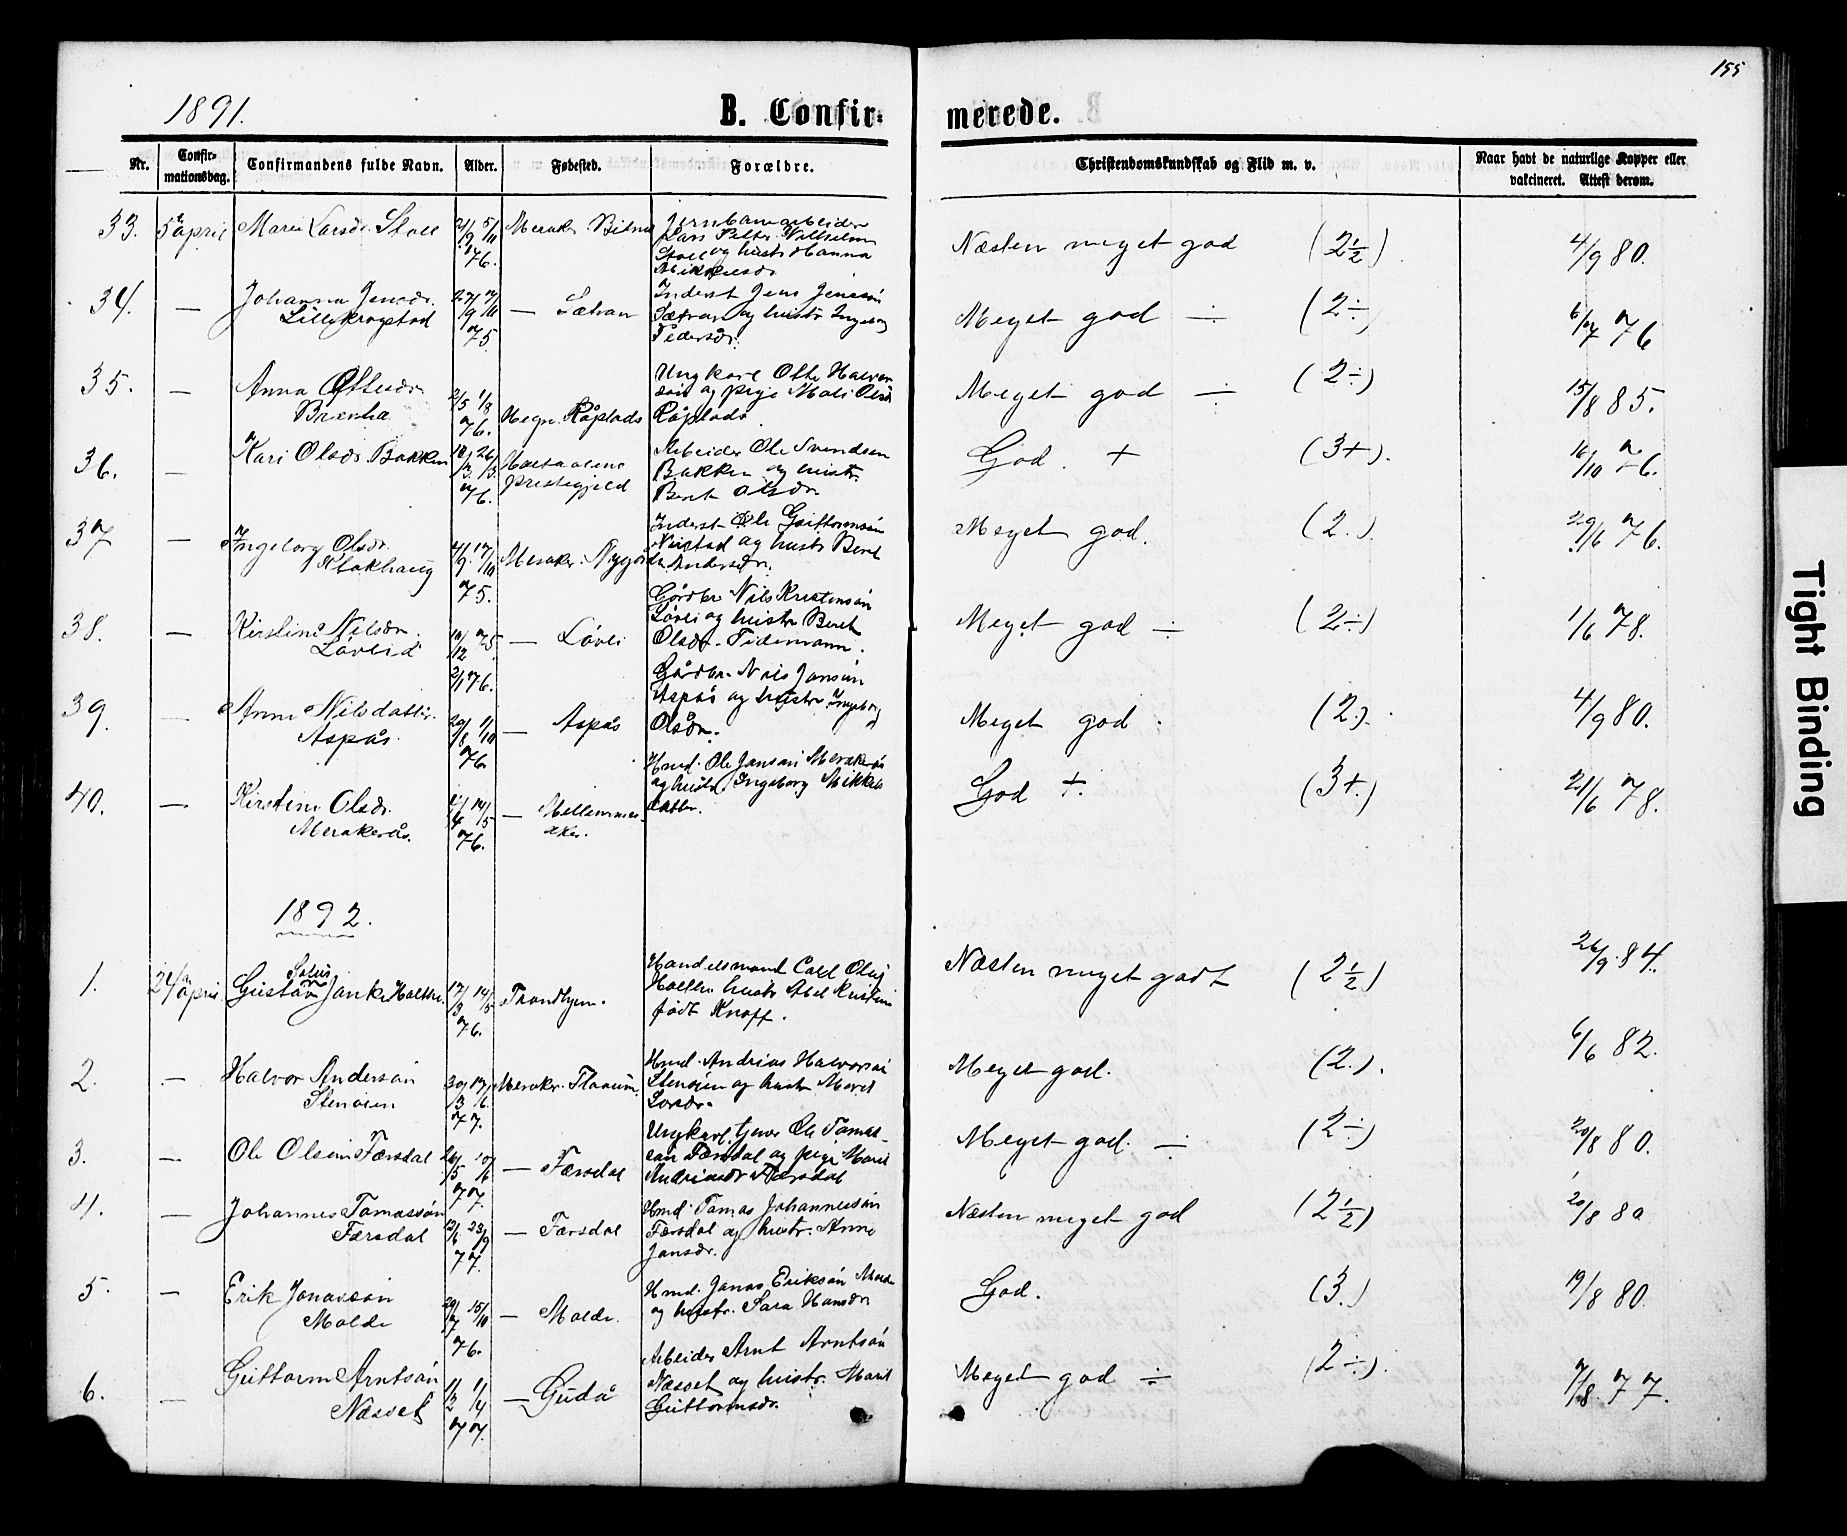 155
1891.
B. Confirmerede.
Nr. Confirmationsdag. Confirmandens fulde Navn. Alder. Fødested. Forældre. Christendomskundskab og Flid m. v. Naar havt de naturlige Kopper eller vakcineret. Attest derom.
33. 5 april Marie Larsdr. Stall 21/9 5/11 76. Meraker Jernbanearbeider Lars Petter Vilhelm Stall og hustr Hanna Mikkelsdr. Næsten meget god (2½) 4/9 80.
34. — Johanna Jensdr. Lillekrogstad 27/9 75. — Inderst Jens Jensøn og hustr Ingeborg Pedersdr. Meget god ÷ (2÷) 6/7 76
35. — Anna Ottesdr. 2/5 1/8 76. Hegre Råpstads Ungkarl Otte Halvorsøn og pige Mali Olsd Råpstads Meget god ÷ (2÷) 15/8 85.
36. — Kari Olsdr. Bakken 18/3 26/3 76. prestegjeld Arbeider Ole Svendsen Bakken og hustr. Beret Olsdr. God + (3+). 16/10 76.
37 — Ingeborg Olsdr. Klokhaug 4/9 17/10 75. Meraker. Inderst Ole Guttormsøn og hustr Beret Andersdr. Meget god. (2.). 29/6 76.
38. — Kirstine Nilsdr. Løvlid 10/12 75 2/1 76. — Løvli Gårdbr Nils Kristensøn Løvli og hustr Beret Olsdr. Tidemann. Meget god ÷ (2÷) 1/6 78.
39. — Anne Nilsdatter Aspås. 20/8 1/10 76 — Aspås Gårdbr. Nils Jonsøn Aspås og hustr Ingeborg Olsdr. Meget god. (2.). 4/9 80.
40. — Kirstine Olsdr. Merakerås. 14/5 76. — Hmd. Ole Jonsøn Merakerås og hustr. Ingeborg Mikkelsdatter. God +. (3+.) 21/6 78.
1892.
1. 24 april Gustav Janke Holthe 17/3 14/5 76. Trondhjem. Handelsmand Carl Oluf Holthe hustr Abel Kristine født Knoff. Næsten meget godt (2½) 26/9 84.
2. — Halvor Andersøn Stenøien 30/3 17/6 77. Meraker. Hmd. Andreas Halvorsøn Stenøien og hustr Marit Larsdr. Meget god. (2.). 6/6 82.
3. — Ole Olsøn Færsdal 26/5 10/6 77. — Færsdal Ungkarl, tjener Ole Tomassøn Færsdal og pige Marit Andrisdr Færsdal Meget god. ÷ (2÷) 20/8 80.
4. — Johannes Tomassøn Færsdal 12/6 23/9 77. — Færsdal Hmd. Tomas Johannessøn Færsdal og hustr. Anne Jonsdr. Næsten meget god (2½) 20/8 80
5. — Erik Jonassøn Molde 29/7 15/10 76. — Molde. Hmd. Jonas Eriksøn Molde og hustr. Sara Hansdr God. (3.) 19/8 80.
6. — Guttorm Arntsøn Næsset 1/2 1/4 77. — Gudå Arbeider Arnt Arntsøn Næsset og hustr. Marit Guttormsdr. Meget god ÷ (2÷). 7/8 77.
Tight Binding